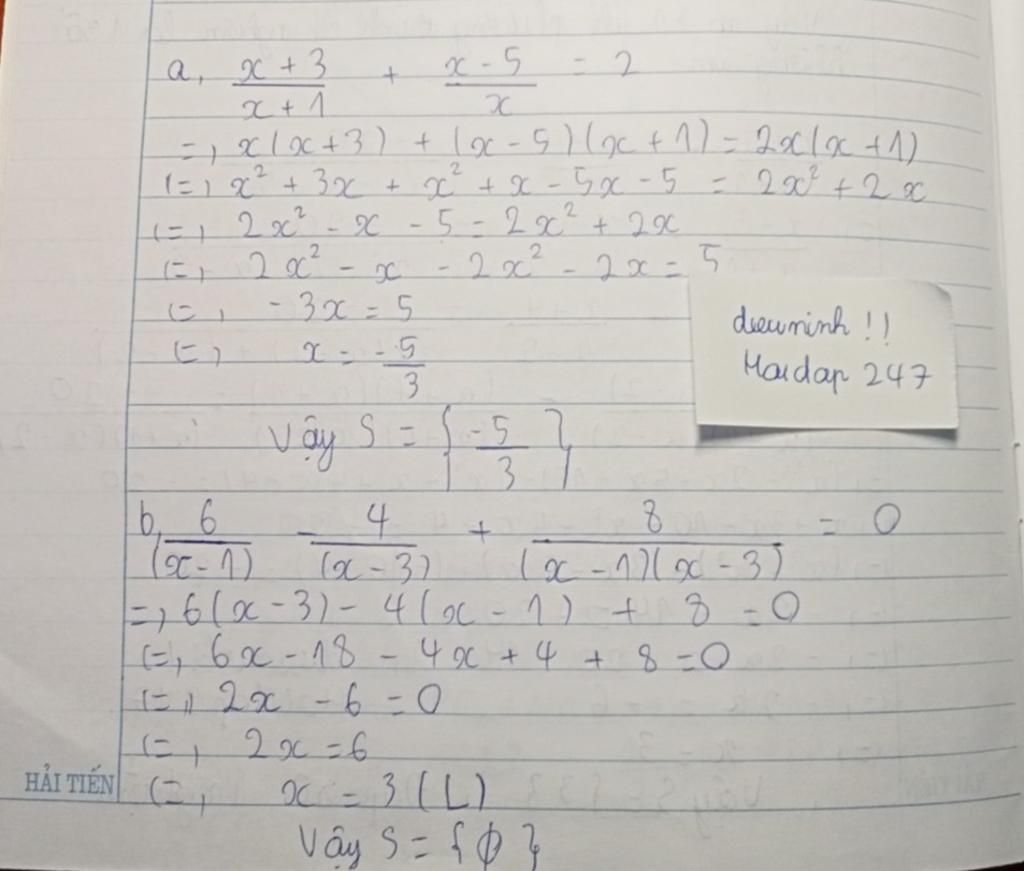 a, \frac{x + 3}{x + 1} + \frac{x - 5}{x} = 2
=, x(x + 3) + (x - 5)(x + 1) = 2x(x + 1)
(=, x² + 3x + x² + x - 5x - 5 = 2x² + 2x
(=, 2x² - x - 5 = 2x² + 2x
(=, 2x² - x - 2x² - 2x = 5
(=, - 3x = 5
(=, x = \frac{-5}{3}
Vậy S = { \frac{-5}{3} }
dieuninh !!
Hoidap 247
b, \frac{6}{(x - 1)} - \frac{4}{(x - 3)} + \frac{8}{(x - 1)(x - 3)} = 0
=, 6(x - 3) - 4(x - 1) + 8 = 0
(=, 6x - 18 - 4x + 4 + 8 = 0
(=, 2x - 6 = 0
(=, 2x = 6
(=, x = 3 (L)
Vậy S = { ϕ }
HẢI TIẾN